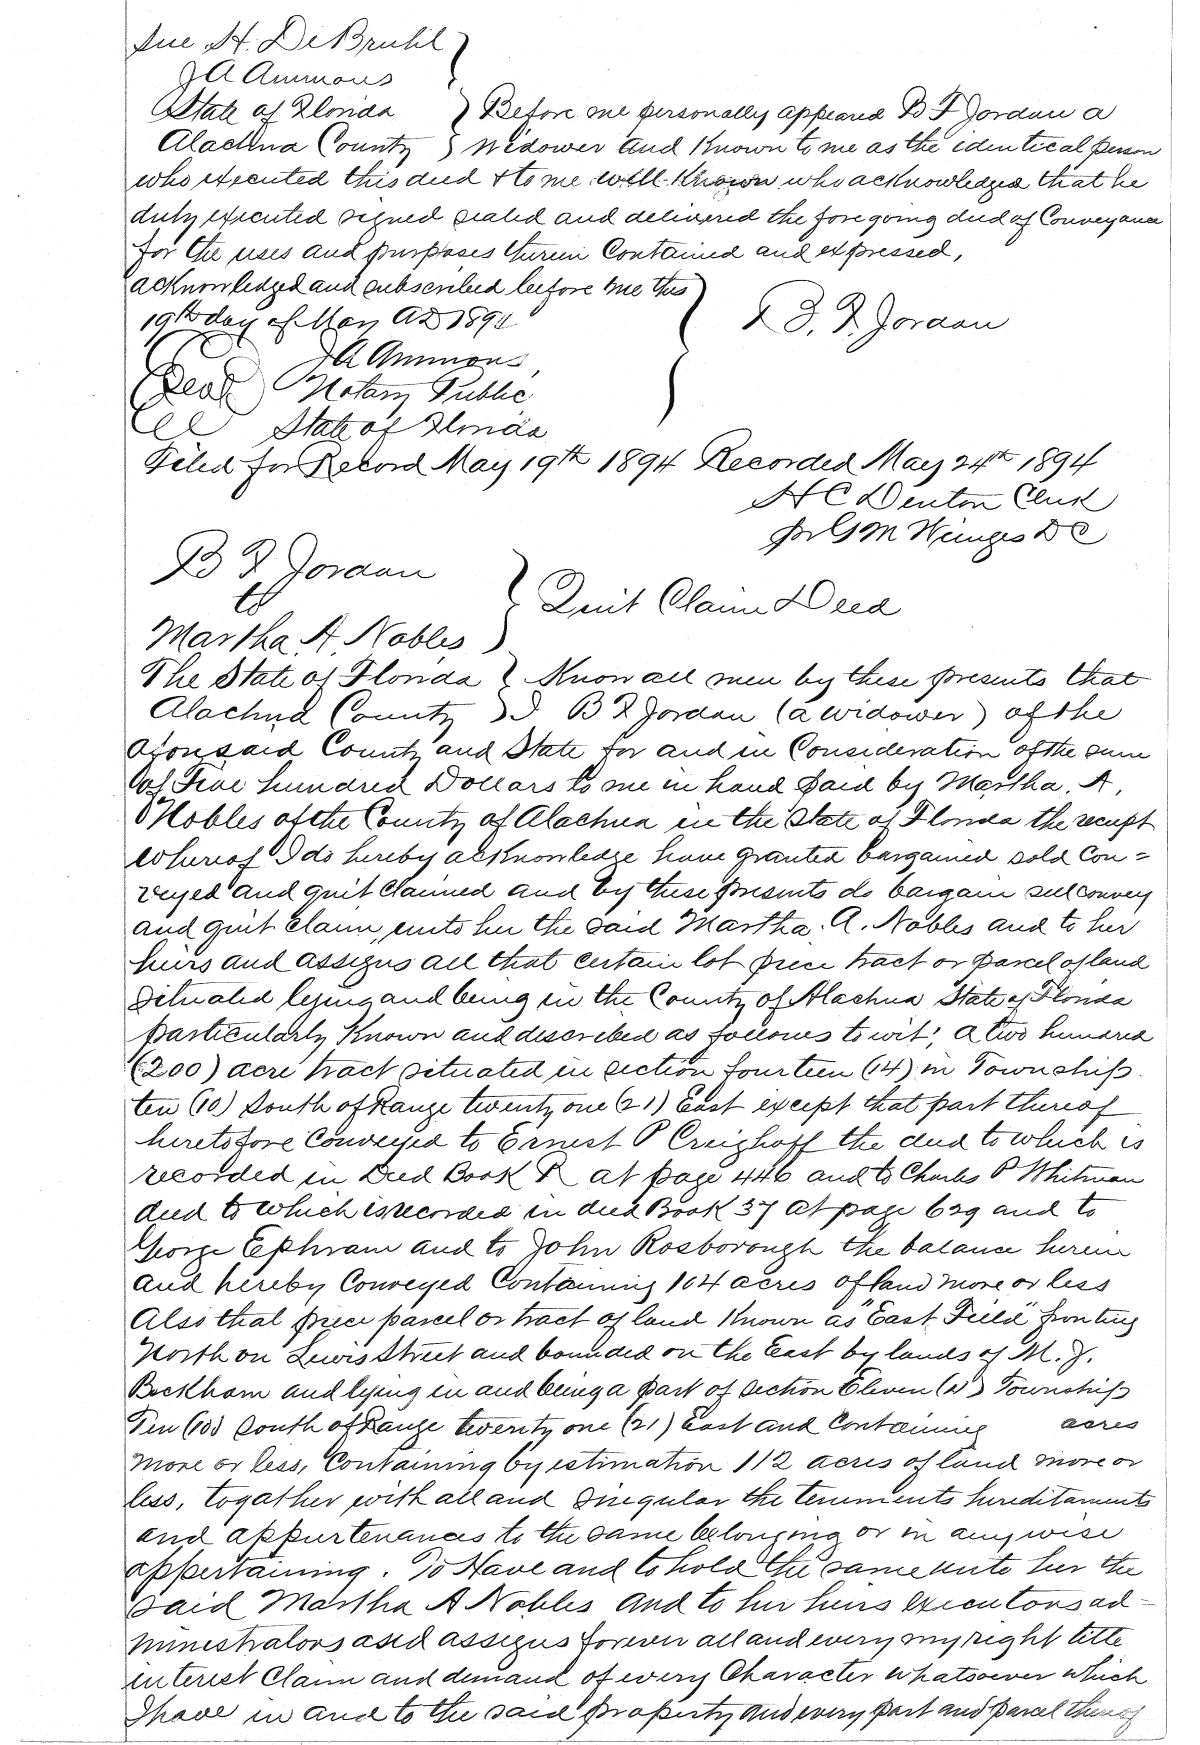 Sue H. DeBruhl
J A Ammons
State of Florida } Before me personally appeared B F Jordan a
Alachua County } Widower and Known to me as the identical person
who executed this deed & to me well Known who acknowledged that he
duly executed signed sealed and delivered the foregoing deed of Conveyance
for the uses and purposes therein Contained and expressed,
acknowledged and subscribed before me this
19th day of May AD 1894
B. F. Jordan
J A Ammons,
Seal Notary Public
State of Florida
Filed for Record May 19th 1894 Recorded May 24th 1894
H C Denton Clerk
pr G M Winges D C
B F Jordan
to
Quit Claim Deed
Martha A. Nobles
The State of Florida } Know all men by these presents that
Alachua County } I B F Jordan (a widower) of the
aforesaid County and State for and in Consideration of the sum
of Five hundred Dollars to me in hand paid by Martha. A,
Nobles of the County of Alachua in the State of Florida the receipt
whereof I do hereby acknowledge have granted bargained sold Con=
veyed and quit claimed and by these presents do bargain sell convey
and quit claim, unto her the said Martha. A. Nobles and to her
heirs and assigns all that certain lot piece tract or parcel of land
situated lying and being in the County of Alachua State of Florida
particularly Known and discribed as follows to wit; a two hundred
(200) acre tract situated in section fourteen (14) in Township.
ten (10) South of Range twenty one (21) East except that part thereof
heretofore Conveyed to Ernest P Creighoff the deed to which is
recorded in Deed Book R at page 446 and to Charles P Whitman
deed to which is recorded in deed Book 37 at page 629 and to
George Ephram and to John Rosborough the balance herein
and hereby Conveyed Containing 104 acres of land more or less
Also that piece parcel or tract of land Known as "East Field" fronting
North on Lewis Street and bounded on the East by lands of M. J.
Beckham and lying in and being a part of section Eleven (11) Township
Ten (10) South of Range twenty one (21) East and Containing acres
more or less, Containing by estimation 112 acres of land more or
less, togather with all and singular the tenements hereditaments
and appurtenances to the same belonging or in anywise
appertaining. To Have and to hold the same unto her the
said Martha A Nobles and to her heirs executors ad-
ministrators and assigns forever all and every my right title
interest Claim and demand of every Character whatsoever which
I have in and to the said property and every part and parcel thereof